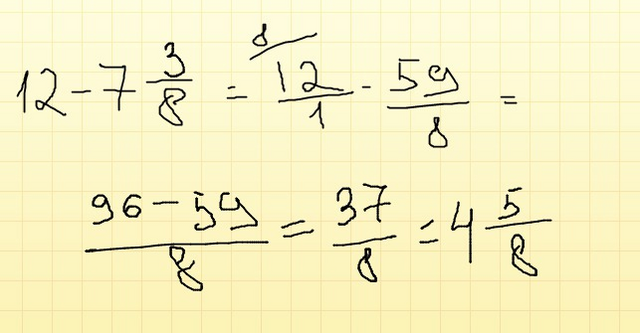 12 - 7 3/8 = 8/ 12/1 - 59/8 =
96 - 59/8 = 37/8 = 4 5/8